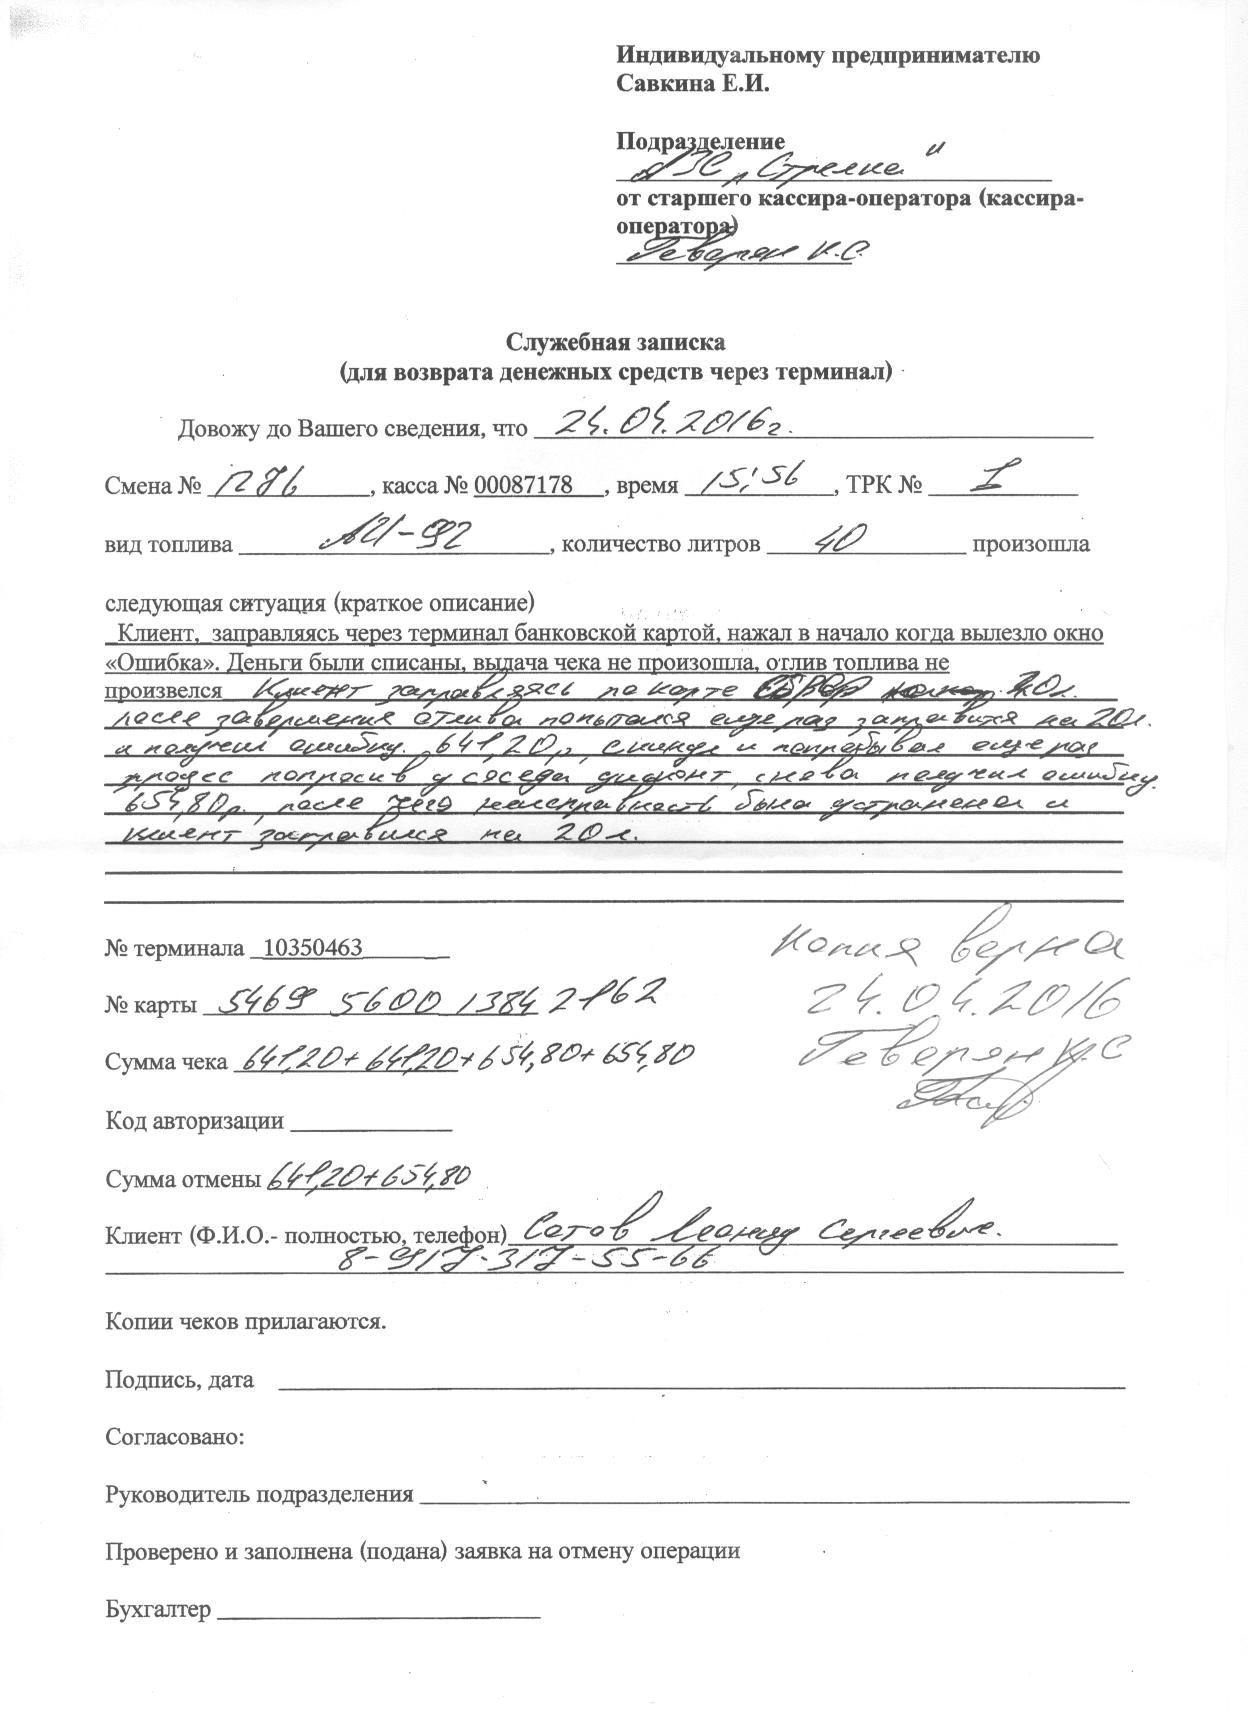 Индивидуальному предпринимателю
Савкина Е.И.
Подразделение
АЗС „Стрелка"
от старшего кассира-оператора (кассира-
оператора)
Геверян К.С.
Служебная записка
(для возврата денежных средств через терминал)
Довожу до Вашего сведения, что 24.04.2016г.
Смена № 1276, касса № 00087178, время 15:56, ТРК № 1
вид топлива АИ-92, количество литров 40 произошла
следующая ситуация (краткое описание)
Клиент, заправляясь через терминал банковской картой, нажал в начало когда вылезло окно
«Ошибка». Деньги были списаны, выдача чека не произошла, отлив топлива не
произвелся Клиент заправляясь по карте 20л.
после завершения отлива попытался еще раз заправится на 20л.
и получил ошибку. 641,20р, скинул и попробывал еще раз
попросив у соседа дисконт, снова получил ошибку.
654,80р., после чего неисправность была устранена и
клиент заправился на 20л.
№ терминала 10350463
Копия верна
№ карты 5469 5600 1384 2162
24.04.2016
Сумма чека 641,20+641,20+654,80+654,80
Геверян К.С
Код авторизации
Сумма отмены 641,20+654,80
Клиент (Ф.И.О.- полностью, телефон) Сотов Леонид Сергеевич.
8-917-317-55-66
Копии чеков прилагаются.
Подпись, дата
Согласовано:
Руководитель подразделения
Проверено и заполнена (подана) заявка на отмену операции
Бухгалтер